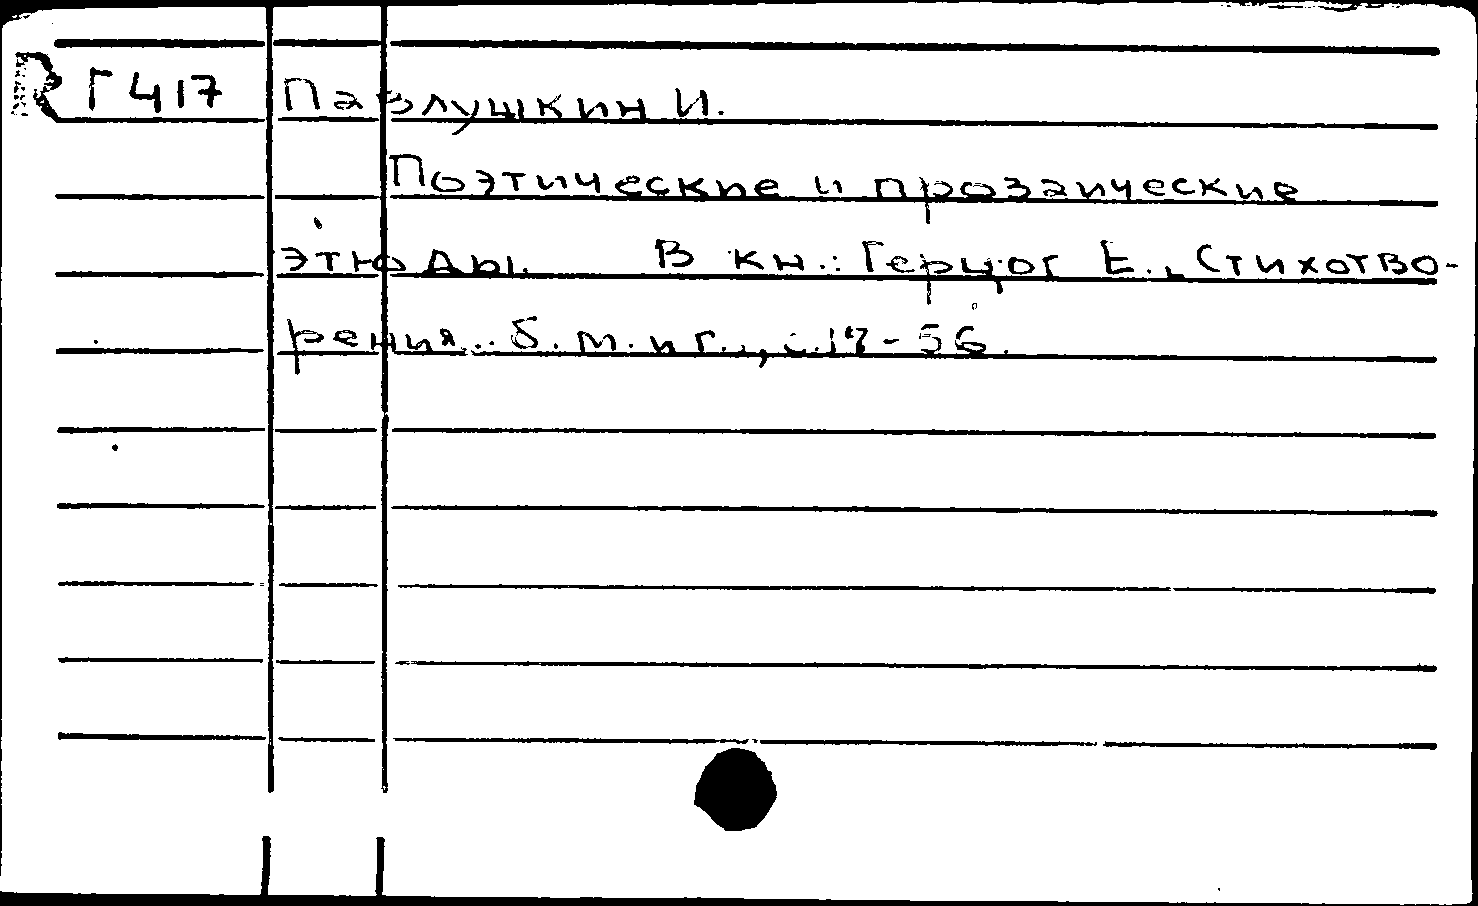 R Г417 Павлушкин И.
Поэтические и прозаические
этюды. В кн.: Герцог Е., Стихотво-
рения.. б.м. и г., с.17-56.